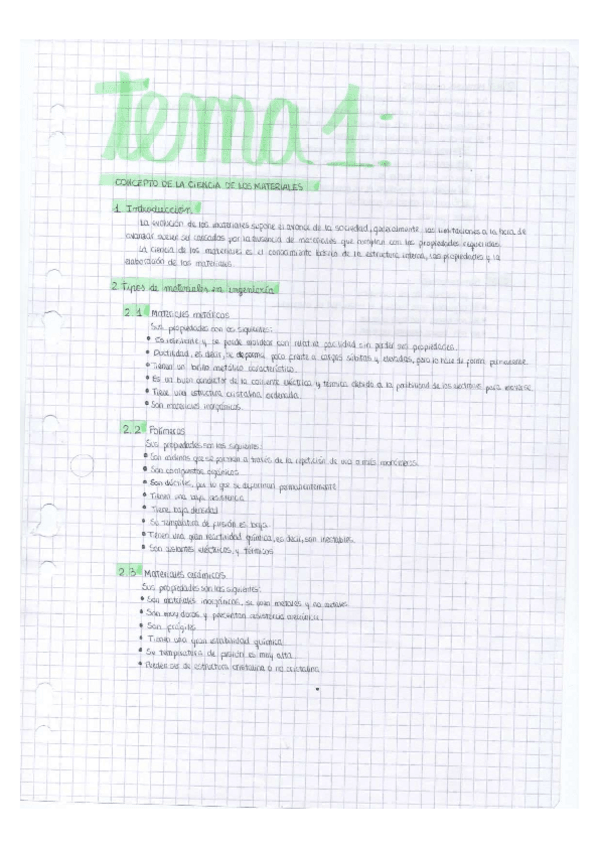 tema 1:
CONCEPTO DE LA CIENCIA DE LOS MATERIALES
1 Introducción.
La evolución de los materiales supone el avance de la sociedad, generalmente las limitaciones a la hora de
avanzar suelen ser marcadas por la ausencia de materiales que cumplan con las propiedades requeridas.
La ciencia de los materiales es el conocimiento básico de la estructura interna, las propiedades y la
elaboración de los materiales.
2 Tipos de materiales en ingeniería
2.1 Materiales metálicos
Sus propiedades son las siguientes:
• Es resistente y se puede moldear con relativa facilidad sin perder sus propiedades.
• Ductilidad, es decir, se deforma, para frente a cargas súbitas y elevadas, pero lo hace de forma permanente.
• Tienen un brillo metálico característico.
• Es un buen conductor de la corriente eléctrica y térmica debido a la posibilidad de los electrones para moverse.
• Tiene una estructura cristalina ordenada.
• Son materiales inorgánicos.
2.2 Polímeros
Sus propiedades son las siguientes:
• Son cadenas que se forman a través de la repetición de uno o más monómeros.
• Son compuestos orgánicos
• Son dúctiles, por lo que se deforman permanentemente
• Tienen una baja resistencia
• Tiene baja densidad
• Su temperatura de fusión es baja
• Tienen una gran reactividad química, es decir, son inestables.
• Son aislantes eléctricos y térmicos
2.3 Materiales cerámicos
Sus propiedades son las siguientes:
• Son materiales inorgánicos, se unen metales y no metales
• Son muy duros y presentan resistencia mecánica
• Son frágiles
• Tienen una gran estabilidad química
• Su temperatura de fusión es muy alta.
• Pueden ser de estructura cristalina o no cristalina